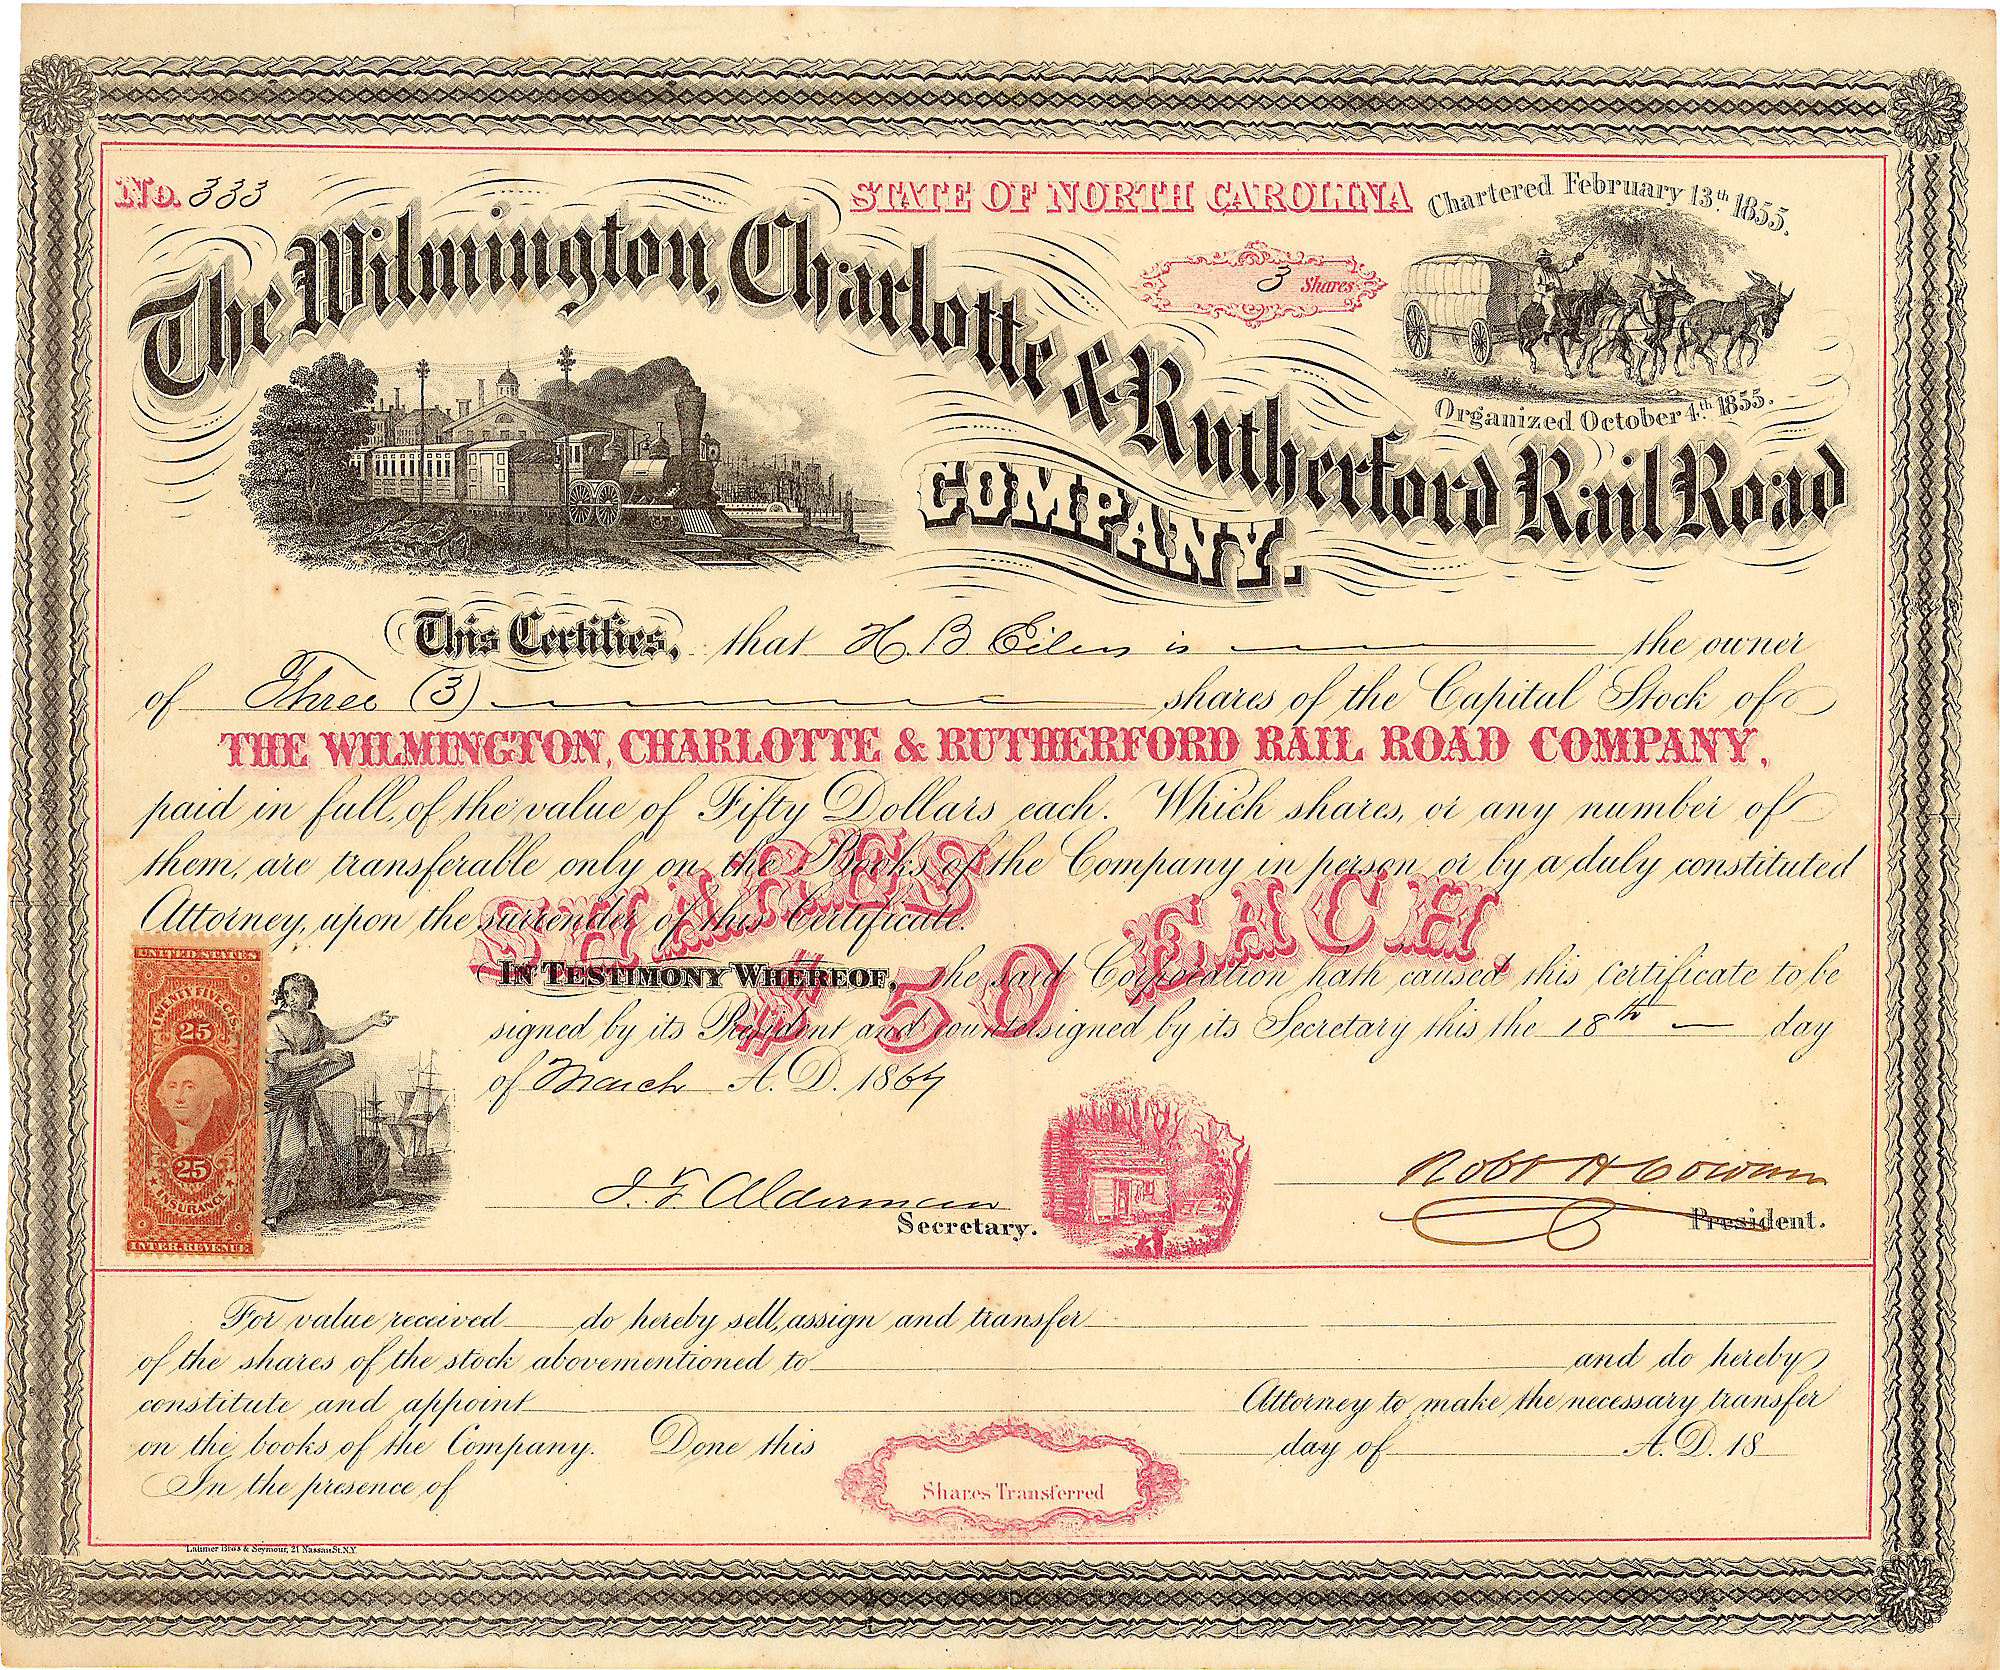 No. 333
STATE OF NORTH CAROLINA
Chartered February 13th 1855.
The Wilmington, Charlotte & Rutherford Rail Road
COMPANY.
3 Shares
Organized October 4th 1855.
This Certifies, that H. B. Eilers is the owner
of Three (3) shares of the Capital Stock of
THE WILMINGTON, CHARLOTTE & RUTHERFORD RAIL ROAD COMPANY,
paid in full, of the value of Fifty Dollars each. Which shares, or any number of
them, are transferable only on the Books of the Company in person or by a duly constituted
Attorney, upon the surrender of this Certificate.
SHARES $50 EACH.
IN TESTIMONY WHEREOF, the said Corporation hath caused this certificate to be
signed by its President and countersigned by its Secretary this the 18th day
of March A. D. 1867
UNITED STATES
TWENTY FIVE CTS.
25
25
INSURANCE
INTER. REVENUE
Robt H Cowan
President.
J. F. Alderman
Secretary.
For value received do hereby sell, assign and transfer
of the shares of the stock abovementioned to and do hereby
constitute and appoint Attorney to make the necessary transfer
on the books of the Company. Done this day of A. D. 18
In the presence of
Shares Transferred
Latimer Bros & Seymour, 21 Nassau St. N.Y.